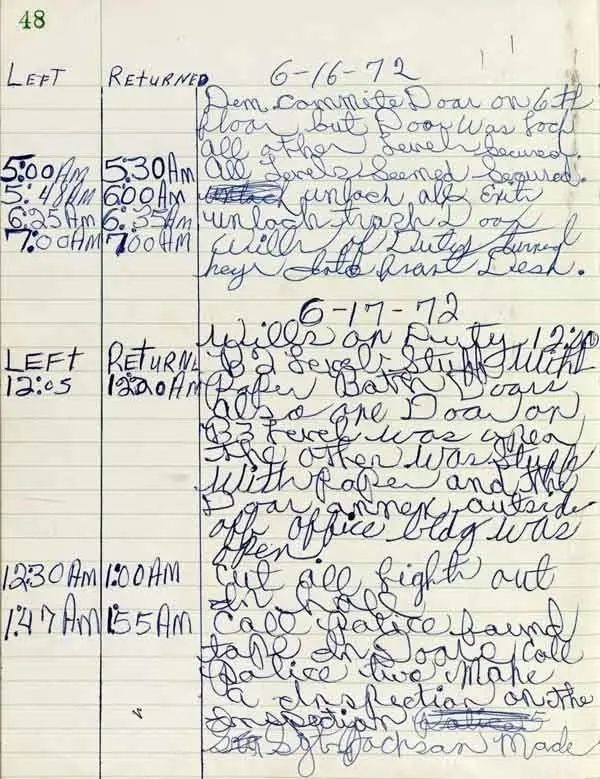 48
LEFT RETURNED 6-16-72
Dem. Committe Door on 6th
floor but Door was Lock
All other Levels Secured.
5:00 Am 5:30 Am All Levels Seemed Secured.
5:48 Am 6:00 Am unlock all Exits
6:25 Am 6:35 Am unlock trash Door
7:00 Am 7:00 Am Wills of Duty turned
keys Into front Desk.
6-17-72
Wills on Duty 12:00
LEFT RETURNE B2 Level Stuff With
12:05 12:20 Am Paper Bath Doors
also one Door on
B3 Level was open
the other was Stuff
With paper and the
Door annex outside
off office bldg was
open
12:30 AM 1:00 AM Cut all Light out
In hall
1:47 AM 1:55 AM Call Police found
tape In Doors call
Police two Make
a Inspection on the
Inspection
Sgt. Jackson Made